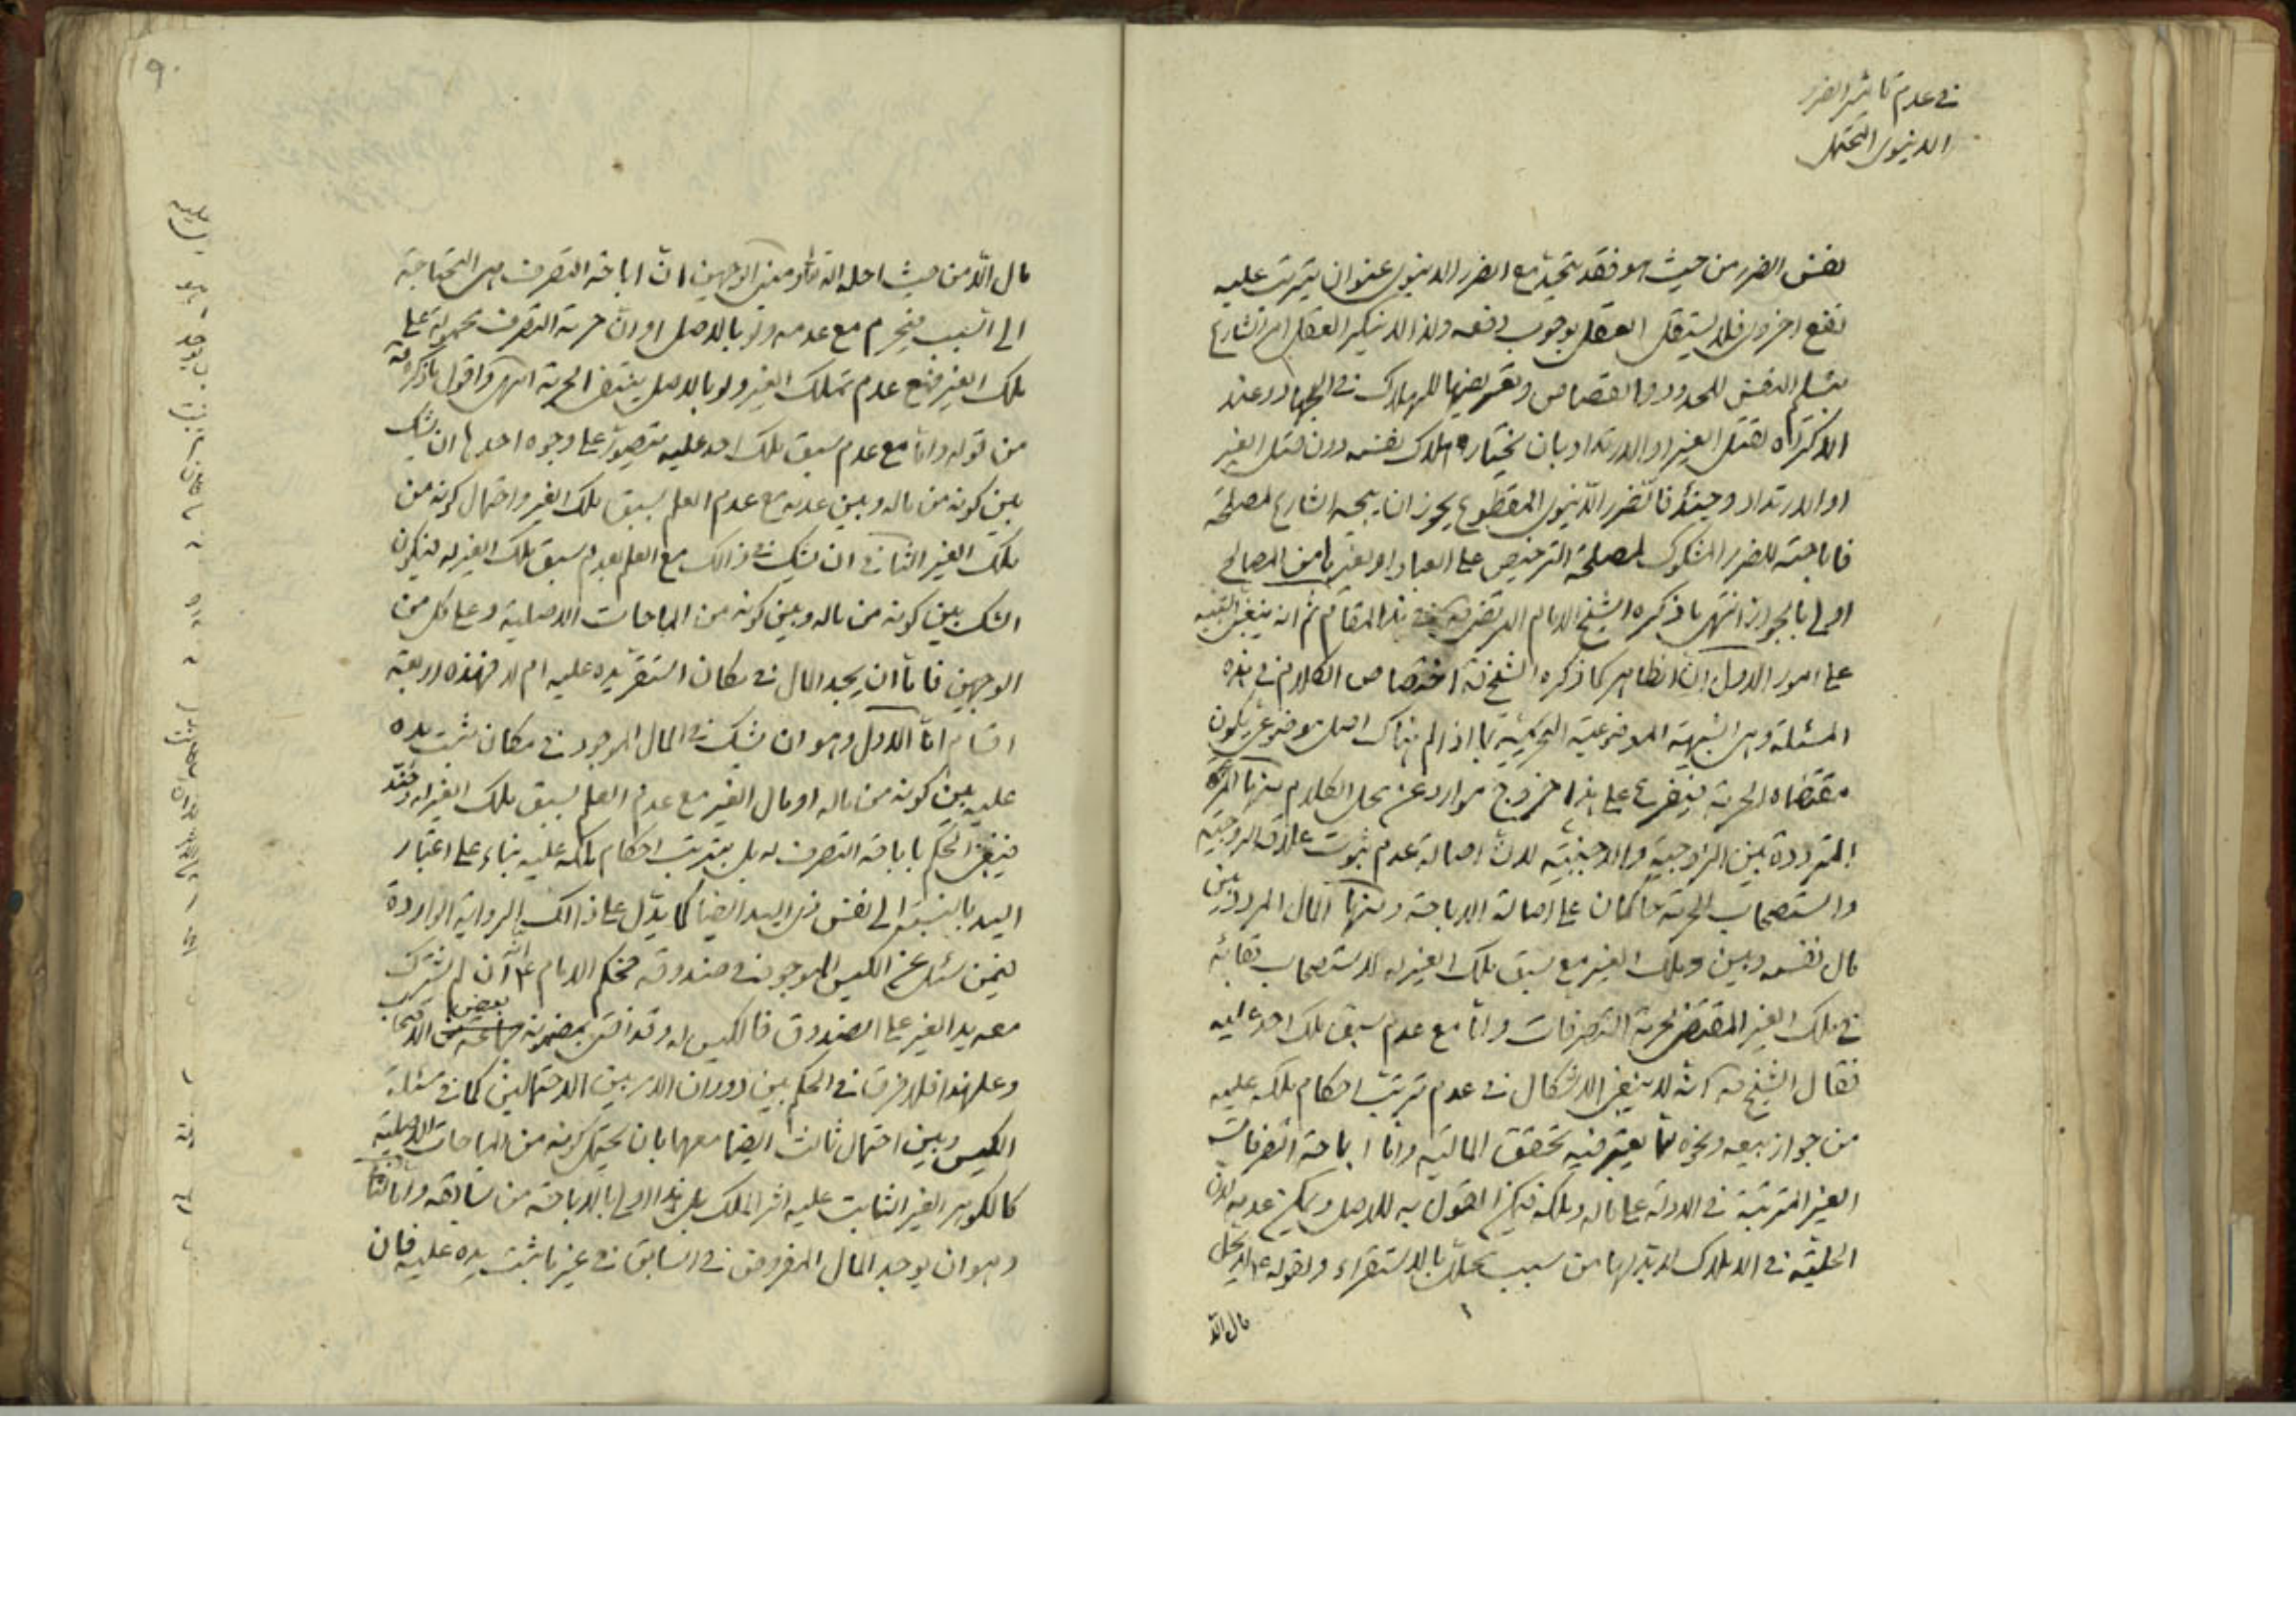 في عدم تأثير الضرر
الدنيوي المحتمل
نفس الضرر من حيث هو فقد يتحد مع الضرر الدنيوي عنوان يترتب عليه
نفع اخروي فلا يستقل العقل بوجوب دفعه ولذا لا ينكر العقل امر الشارع
بتسليم النفس للحدود والقصاص وتعريضها للهلاك في الجهاد وعند
الاكراه بقتل الغير او الارتداد بان يختار هلاك نفسه دون قتل الغير
او الارتداد وحينئذ فالضرر الدنيوي المقطوع يجوز ان يبيحه الشارع لمصلحة
فاباحته للضرر المشكوك لمصلحة الترخيص على العباد او بغيرها من المصالح
اولى بالجواز انتهى ما ذكره الشيخ الامام المرتضى في هذا المقام ثم انه ينبغي التنبيه
على امور الاول ان الظاهر كما ذكره الشيخ قه اختصاص الكلام في هذه
المسئلة وهي الشبهة الموضوعية التحريمية بما اذا لم هناك اصل موضوعي يكون
مقتضاه الحرمة فيتفرع على هذا خروج موارد عن محل الكلام منها المرأة
المترددة بين الزوجية والاجنبية لان اصالة عدم ثبوت علاقة الزوجية
واستصحاب الحرمة حاكمان على اصالة الاباحة ومنها المال المردد بين
مال نفسه وبين ملك الغير مع سبق ملك الغير له لاستصحاب بقائه
في ملك الغير المقتضي لحرمة التصرفات واما مع عدم سبق ملك احد عليه
فقال الشيخ قه انه لا ينبغي الاشكال في عدم ترتب احكام ملكه عليه
من جواز بيعه ونحوه مما يعتبر فيه تحقق المالية واما اباحة التصرفات
الغير المترتبة في الادلة على ماله وملكه فيمكن القول به للاصل ويمكن عدمه لان
الحلية في الاملاك لا بد لها من سبب محلل بالاستقراء ولقوله ع لا يحل
مال الا
مال الا من حيث احله الله ومبنى الوجهين ان اباحة التصرف هي المحتاجة
الى السبب فيحرم مع عدمه ولو بالاصل او ان حرمة التصرف محمولة على
ملك الغير فمع عدم تملك الغير ولو بالاصل ينتفي الحرمة انتهى واقول ما ذكره قه
من قوله واما مع عدم سبق ملك احد عليه يتصور على وجوه احدها ان يشك
بين كونه من ماله وبين عدمه مع عدم العلم بسبق ملك الغير واحتمال كونه من
ملك الغير الثاني ان يشك في ذالك مع العلم بعدم سبق ملك الغير له فيكون
الشك بين كونه من ماله وبين كونه من المباحات الاصلية وعلى كل من
الوجهين فاما ان يجد المال في مكان استقر يده عليه ام لا فهذه اربعة
اقسام اما الاول وهو ان يشك في المال الموجود في مكان ثبت يده
عليه بين كونه من ماله او مال الغير مع عدم العلم بسبق ملك الغير له
فينبغي الحكم باباحة التصرف له بل بترتب احكام ملكه عليه بناء على اعتبار
اليد بالنسبة الى نفس ذي اليد ايضا كما يدل على ذالك الرواية الواردة
فيمن سئل عن الكيس الموجود في صندوقه فحكم الامام ع بانه ان لم يشترك
معه يد الغير على الصندوق فالكيس له وقد افتى بمضمونه بعض الاصحاب
وعلى هذا فلا فرق في الحكم بين دوران الامر بين الاحتمالين كما في مسئلة
الكيس وبين احتمال ثالث ايضا معهما بان يحتمل كونه من المباحات الاصلية
كالكوهر الغير الثابت عليه اثر الملك بل هذا اولى بالاباحة من سابقه واما الثاني
وهو ان يوجد المال المفروض في السابق في غير ما ثبت يده عليه فان